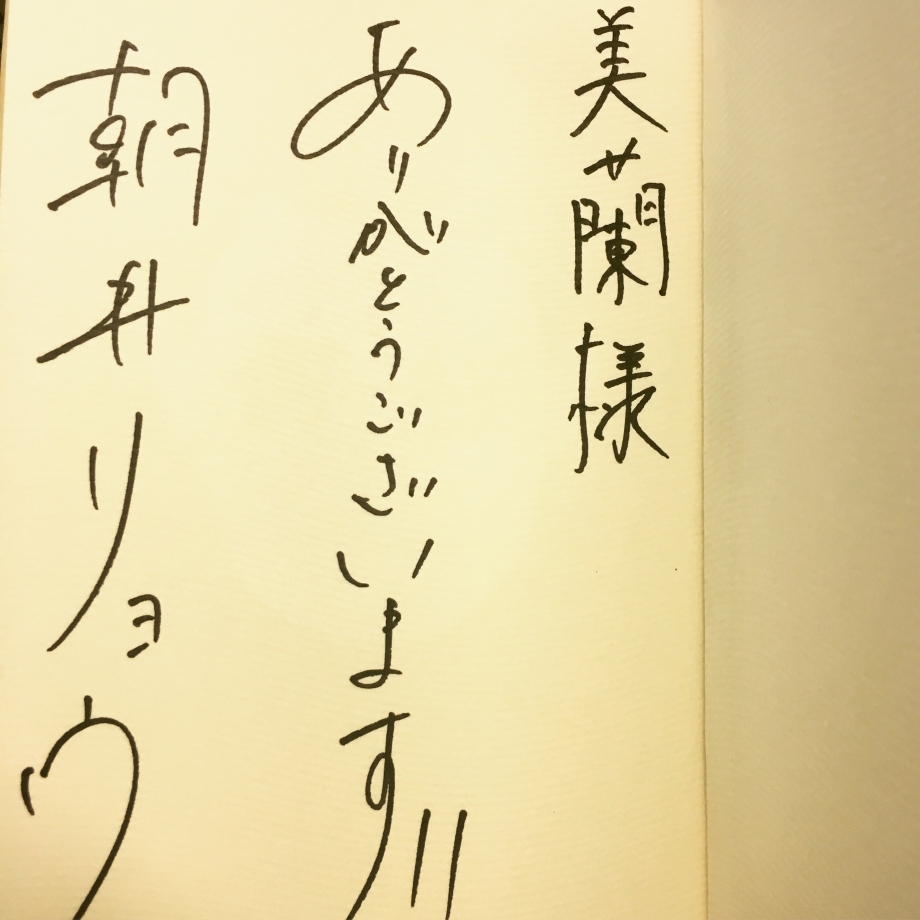 美蘭様
ありがとうございます!!
朝井リョウ